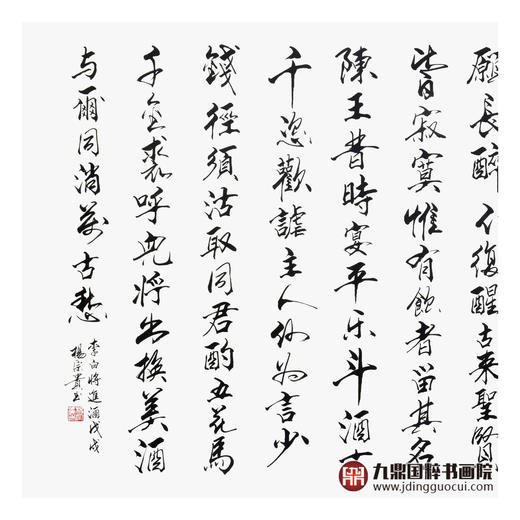 願長醉不復醒古來聖賢
皆寂寞惟有飲者留其名
陳王昔時宴平乐斗酒十
千恣歡謔主人何为言少
錢徑須沽取同君酌五花馬
千金裘呼兒将出換美酒
与爾同消萬古愁
李白將進酒戊戌
楊宗貴书
九鼎国粹书画院
www.jdingguocui.com